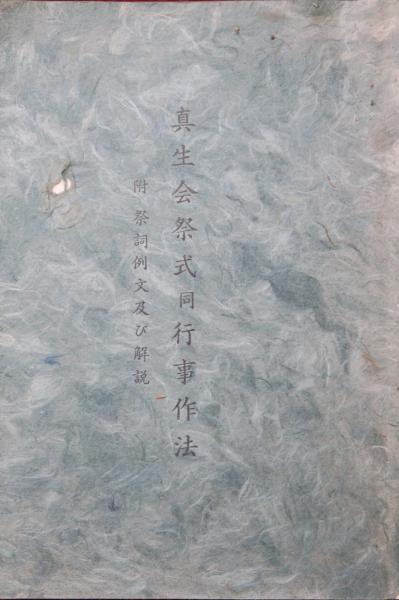 真生会祭式同行事作法
附 祭詞例文及び解説